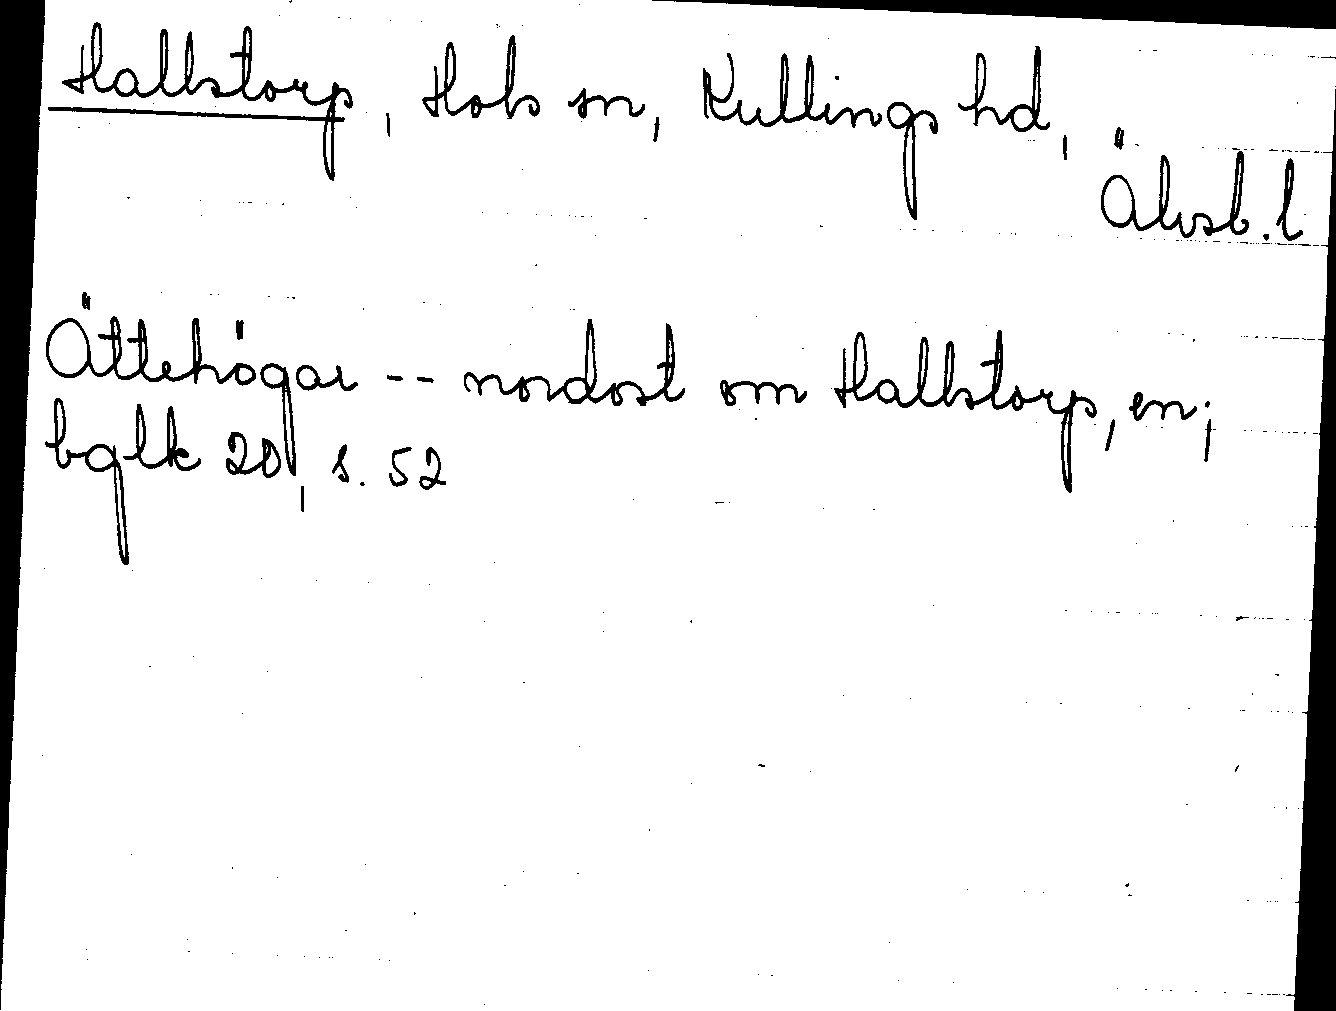 Hallstorp, Hols sn, Kullings hd,
Älvsb. l
Ättehögar -- nordost om Hallstorp, en;
bglk 20, s. 52